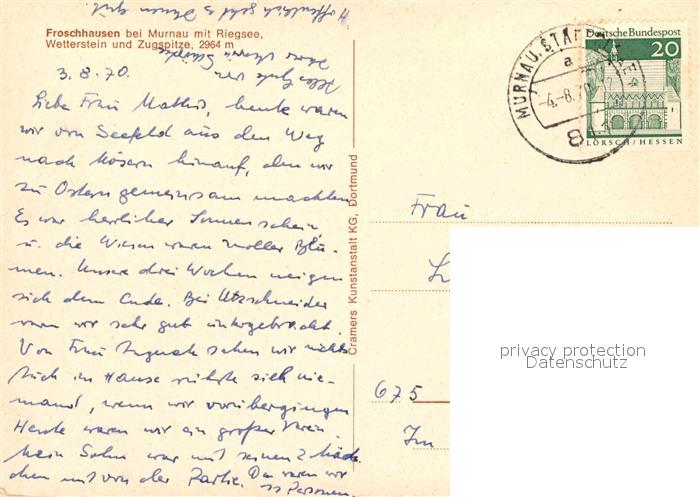 Hoffentlich geht es Ihnen gut
Froschhausen bei Murnau mit Riegsee,
Wetterstein und Zugspitze, 2964 m
Alles Gute von
Ihrer
3.8.70.
Liebe Frau Mathis, heute waren
wir von Seefeld aus den Weg
nach Mösern hinauf, den wir
zu Ostern gemeinsam machten
Es war herrlicher Sonnenschein,
u. die Wiesen waren voller Blu-
men. Unsere drei Wochen neigen
sich dem Ende. Bei Utzschneider
waren wir sehr gut untergebracht.
Von Frau sehen wir nichts
Auch im Hause rührte sich nie-
mand, wenn wir vorübergingen
Heute waren wir ein großer Verein
Mein Sohn war mit seinen 2 Mäd-
chen mit von der Partie. Da waren wir
Personen
Cramers Kunstanstalt KG, Dortmund
MURNAU, STAFFELSEE
a
-4.-8.70
811
Deutsche Bundespost
20
LORSCH/HESSEN
Frau
L
675
Im
privacy protection
Datenschutz